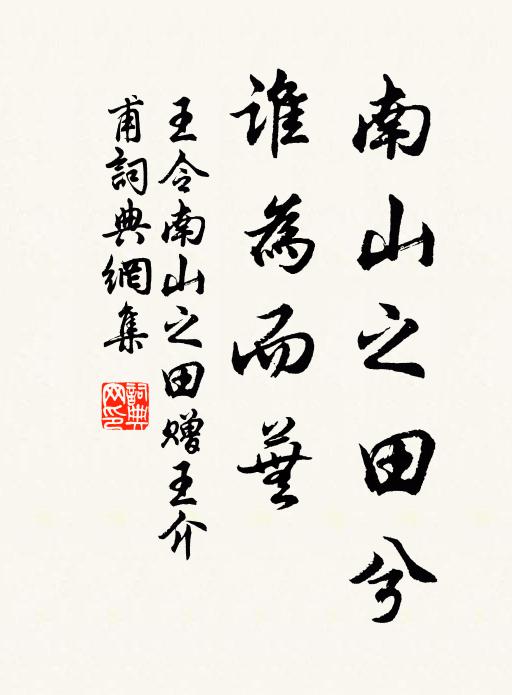 南山之田兮
誰為而蕪
王令南山之田赠王介
甫詞典網集
詞典
网印